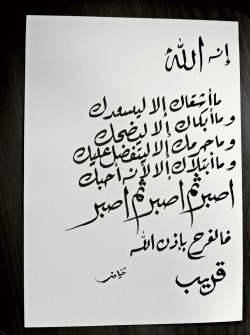 إنه الله
ما أشقاك إلا ليسعدك
وما أبكاك إلا ليضحكك
وما حرمك إلا ليتفضل عليك
وما أبتلاك إلا لأنه أحبك
اصبر ثم اصبر ثم اصبر
فالفرج بإذن الله
قريب